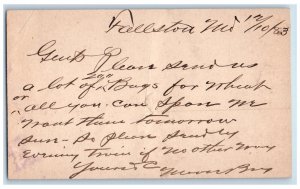 Fallston Md 12/10/83
Gents Please send us
a lot of 200 Bags for wheat
or all you can spare me
want them tomorrow
sure - so please send by
Evening train if no other way
Yours &c
Bros